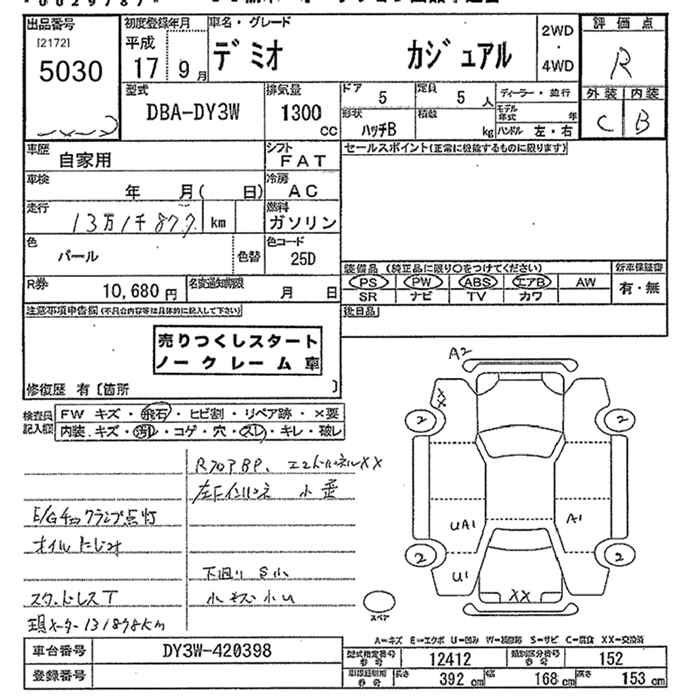 出品番号
[2172]
5030
初度登録年月
平成
17 9月
車名・グレード
デミオ カジュアル
2WD
・
4WD
評価点
R
外装 内装
C B
型式
DBA-DY3W
排気量
1300
cc
ドア
5
定員
5 人
ディーラー・並行
モデル年式 年
形状
ハッチB
積載
kg
ハンドル 左・右
車歴
自家用
シフト
FAT
セールスポイント(正常に機能するものに限ります)
車検
年 月( 日)
冷房
AC
走行
13万1千877 km
燃料
ガソリン
色
パール
色替
色コード
25D
R券
10,680 円
名変通知期限
月 日
装備品 (純正品に限り○をつけてください)
PS PW ABS エアB AW
SR ナビ TV カワ
新車保証書
有・無
後日品
注意事項申告欄(不具合内容等は具体的に記入して下さい)
売りつくしスタート
ノークレーム車
修復歴 有〔箇所 〕
検査員記入欄
FW キズ・飛石・ヒビ割・リペア跡・×要
内装.キズ・汚れ・コゲ・穴・スレ・キレ・破レ
RフロアBP、 XX
左Fインパネ 小歪
E/Gチェックランプ点灯
オイルにじみ
下回り S小
スタッドレスT
小キズ小U
現メーター131898km
A2
XX
2 2
UA1 A1
2 2
U1
XX
スペア
A=キズ E=エクボ U=凹み W=補修跡 S=サビ C=腐食 XX=交換済
車台番号
DY3W-420398
登録番号
型式指定番号
12412
類別区分番号
152
長さ 392 cm
幅 168 cm
高さ 153 cm